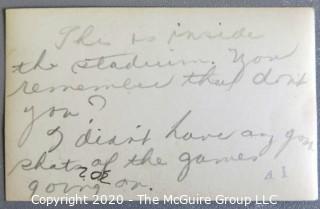 This is inside
the stadium. You
remember that don't
you?
I didn't have any
shots of the games
going on.
Copyright 2020 - The McGuire Group LLC